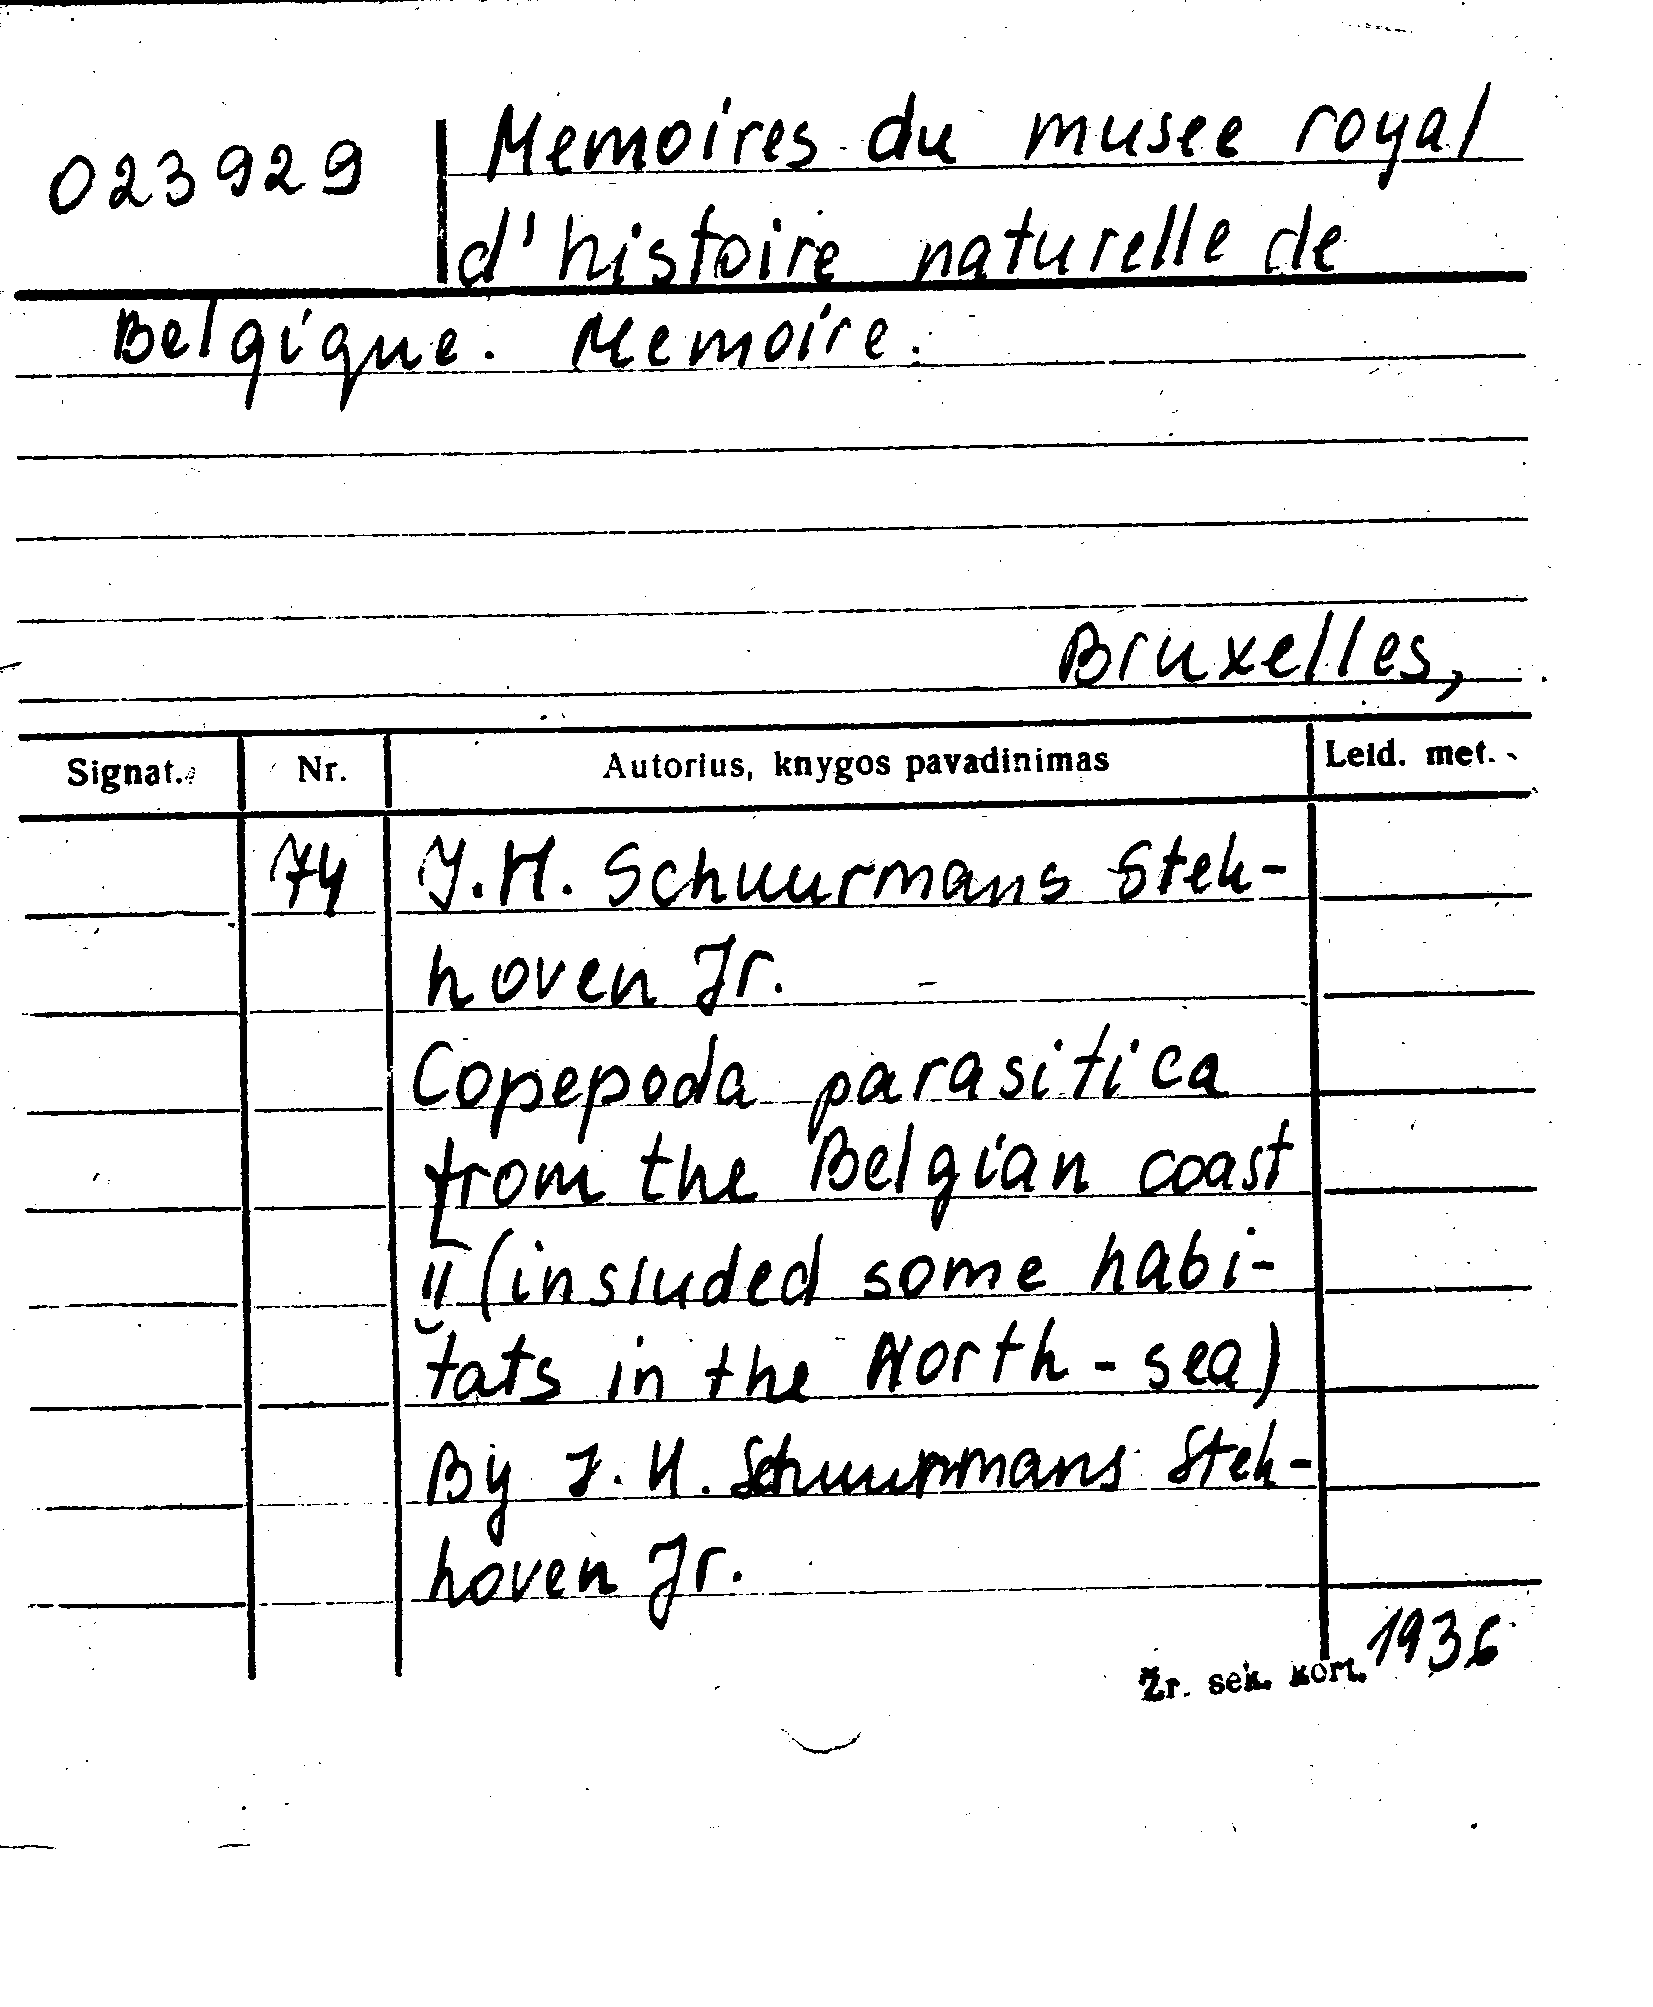 023929
Memoires du musee royal
d'histoire naturelle de
Belgique. Memoire.
Bruxelles,
Signat. Nr. Autorius, knygos pavadinimas Leid. met.
74 J.H. Schuurmans Stek-
hoven Jr.
Copepoda parasitica
from the Belgian coast
II (insluded some habi-
tats in the North-sea)
By J.H. Schuurmans Stek-
hoven Jr.
1936
Žr. sek. kort.